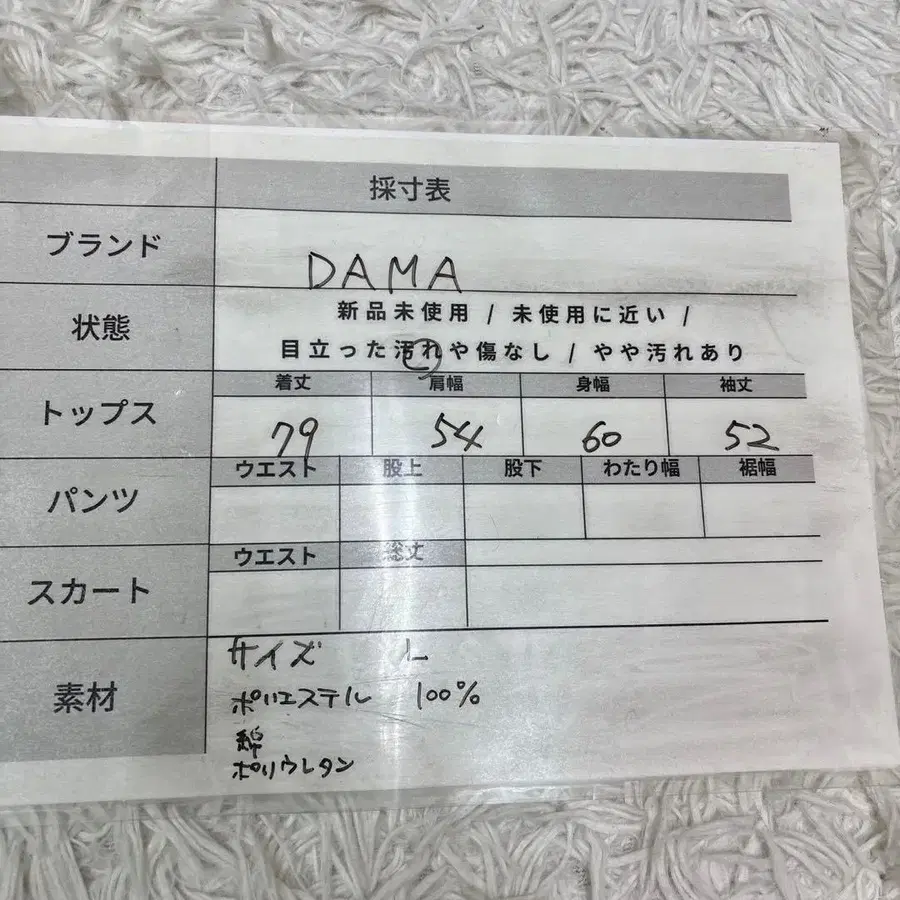 採寸表
ブランド
DAMA
状態
新品未使用 / 未使用に近い /
目立った汚れや傷なし / やや汚れあり
トップス
着丈 肩幅 身幅 袖丈
79 54 60 52
パンツ
ウエスト 股上 股下 わたり幅 裾幅
スカート
ウエスト 総丈
素材
サイズ L
ポリエステル 100%
綿
ポリウレタン